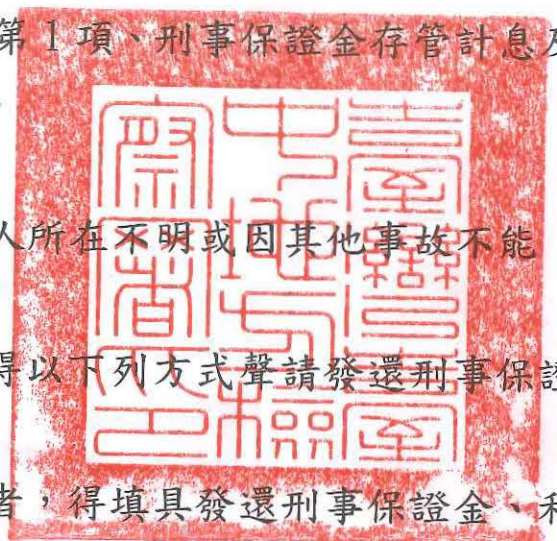 第1項、刑事保證金存管計息及
人所在不明或因其他事故不能
得以下列方式聲請發還刑事保證
者,得填具發還刑事保證金、利
臺灣臺
中地方檢
察署印